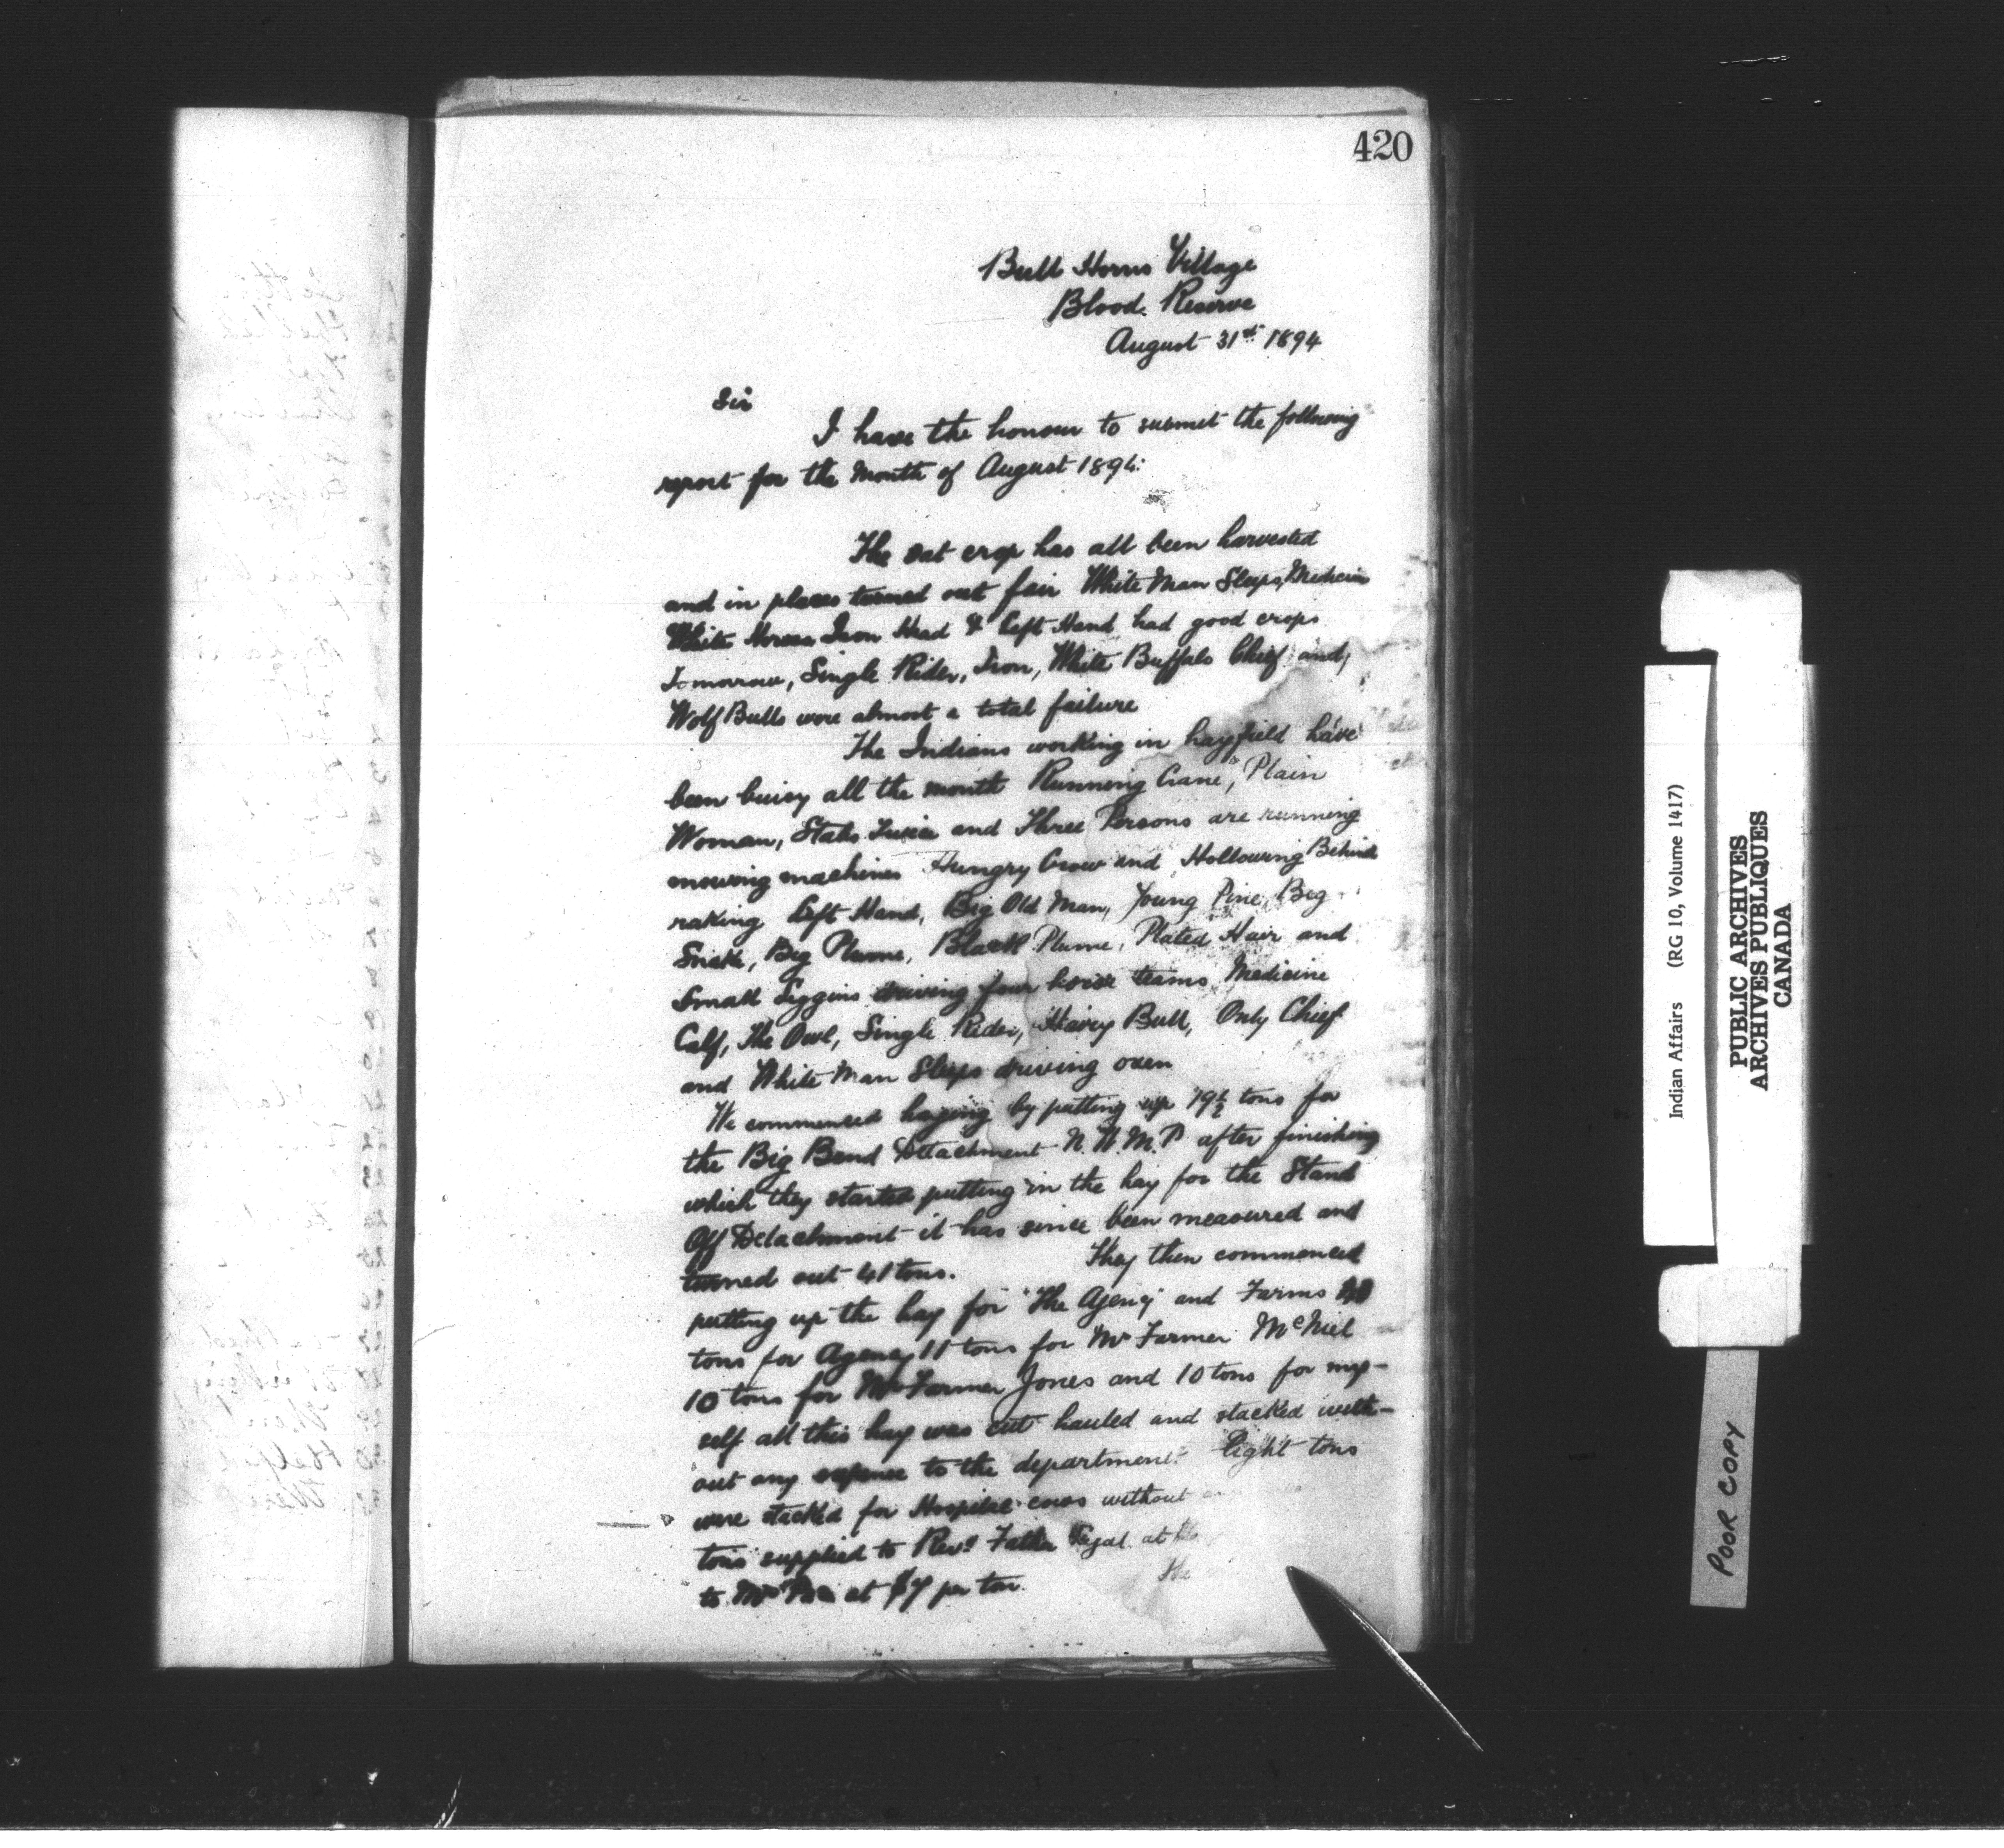 420
Bull Horns Village
Blood. Reserve
August 31st 1894
Sir
I have the honour to submit the following
report for the month of August 1894.
The oat crop has all been harvested
and in places turned out fair White Man Sleeps, Medicine
White Horses Iron Head & Left Hand had good crops
Tomorrow, Single Rider, Iron, White Buffalo Chief and,
Wolf Bulls were almost a total failure
The Indians working in hayfield have
been buisy all the month Running Crane, Plain
Woman, Stabs and Three Persons are running
mowing machines Hungry Crow and Hollowing Behind
raking Left Hand, Big Old Man, Young Pine, Big
Snake, Big Plume, Black Plume, Plated Hair and
Small Leggins driving four horse teams Medicine
Calf, The Owl, Single Rider, Hairy Bull, Only Chief
and White Man Sleeps driving oxen
We commenced haying by putting up 19½ tons for
the Big Bend Detachment N.W.M.P after finishing
which they started putting in the hay for the Stand
Off Detachment it has since been measured and
turned out 41 tons. They then commenced
putting up the hay for The Agency and Farms 40
tons for Agency 11 tons for Mr Farmer McNeil
10 tons for Mr Farmer Jones and 10 tons for my-
self all this hay was cut hauled and stacked with-
out any expence to the department. Eight tons
were stacked for Hospital cows without
tons supplied to Revd Father Legal at the
to Mr at $7 per ton. The
Indian Affairs (RG 10, Volume 1417)
PUBLIC ARCHIVES
ARCHIVES PUBLIQUES
CANADA
POOR COPY